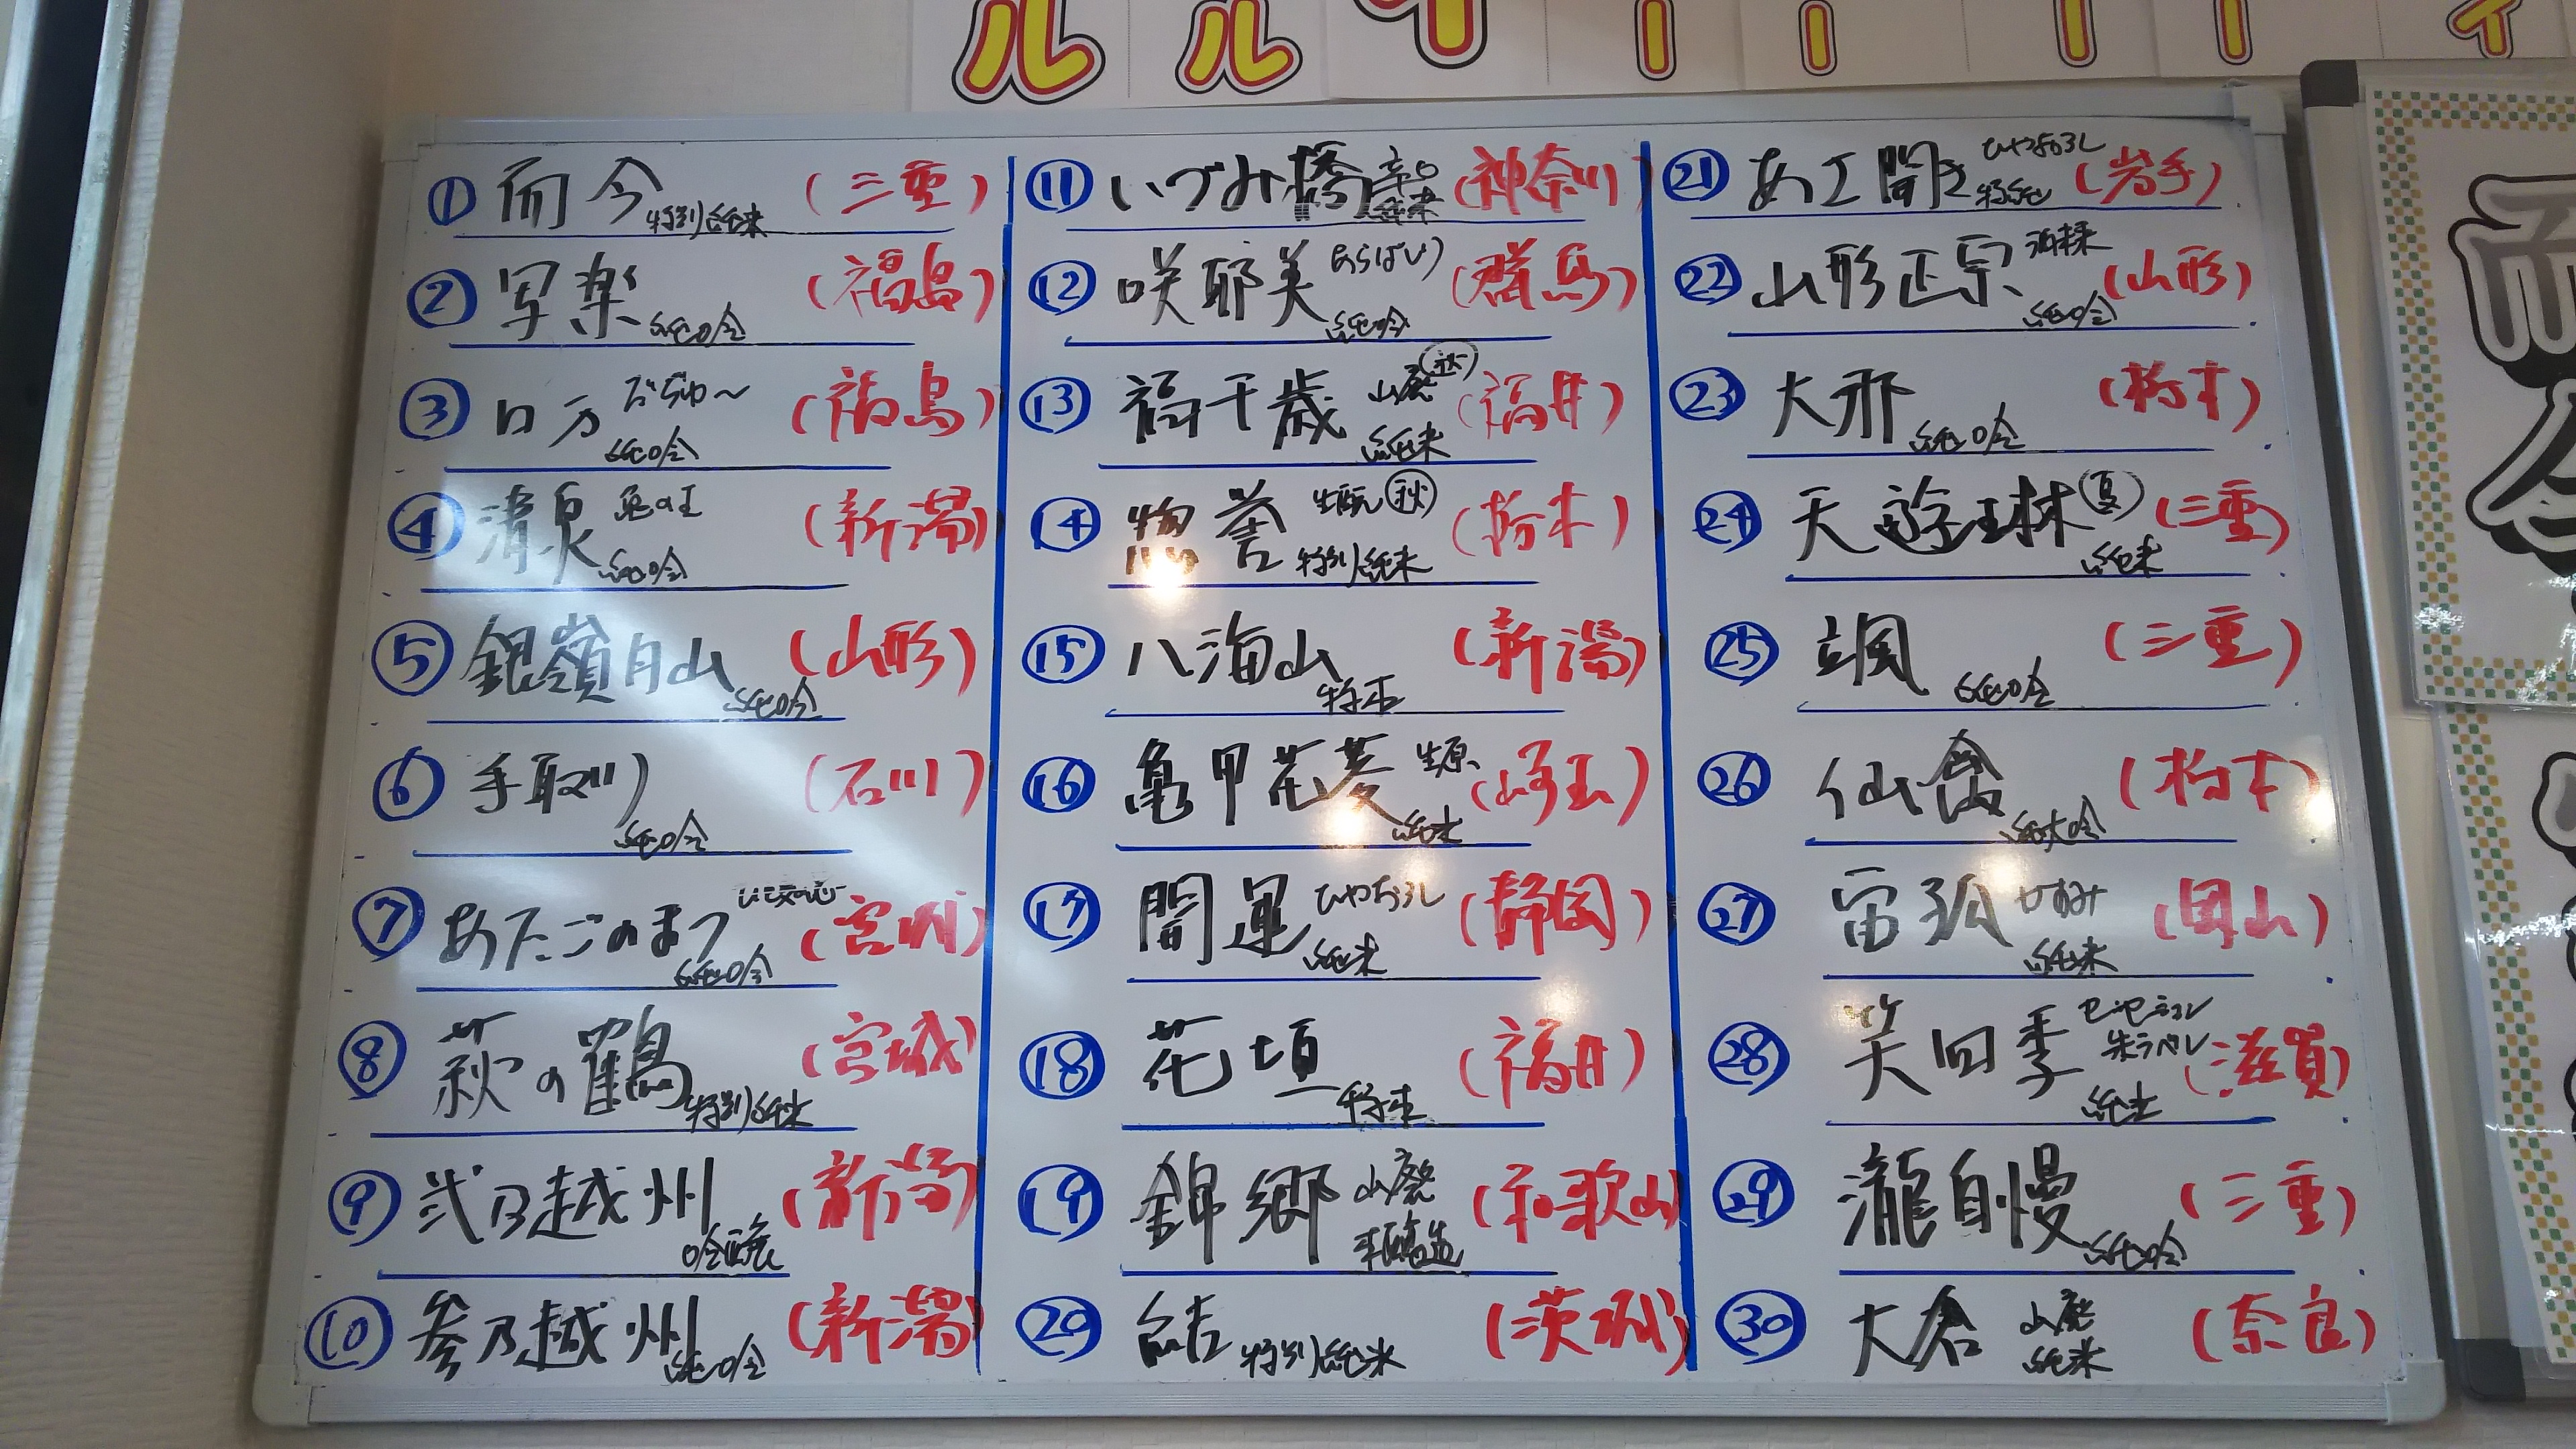 ルルイーーーーィ
① 而今 特別純米 (三重)
② 写楽 純吟 (福島)
③ ロ万 だぢゅ〜 純吟 (福島)
④ 清泉 亀の王 純吟 (新潟)
⑤ 銀嶺月山 純吟 (山形)
⑥ 手取川 純吟 (石川)
⑦ あたごのまつ 純吟 (宮城)
⑧ 萩の鶴 特別純米 (宮城)
⑨ 弐乃越州 (新潟)
⑩ 参乃越州 純吟 (新潟)
⑪ いづみ橋 辛口 純米 (神奈川)
⑫ 咲耶美 あらばしり 純吟 (群馬)
⑬ 福千歳 山廃 ㊙秋 純米 (福井)
⑭ 惣誉 生酛 秋 特別純米 (栃木)
⑮ 八海山 特本 (新潟)
⑯ 亀甲花菱 生原 純米 (埼玉)
⑰ 開運 ひやおろし 純米 (静岡)
⑱ 花垣 特本 (福井)
⑲ 錦郷 山廃 本醸造 (和歌山)
⑳ 結 特別純米 (茨城)
㉑ あさ開き ひやおろし 特純 (岩手)
㉒ 山形正宗 酒未来 純吟 (山形)
㉓ 大那 純吟 (栃木)
㉔ 天遊琳 夏 純米 (三重)
㉕ 颯 純吟 (三重)
㉖ 仙禽 純大吟 (栃木)
㉗ 宙狐 かすみ 純米 (岡山)
㉘ 笑四季 センセーション 朱ラベル 純米 (滋賀)
㉙ 瀧自慢 純吟 (三重)
㉚ 大倉 山廃 純米 (奈良)
而今